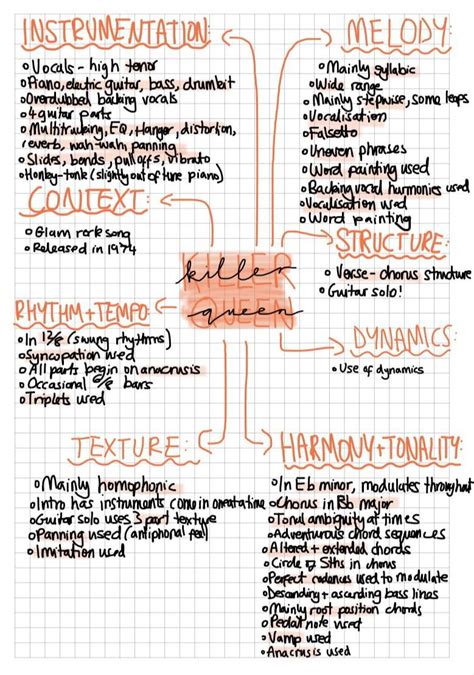 INSTRUMENTATION:
Vocals - high tenor
Piano, electric guitar, bass, drumkit
Overdubbed backing vocals
4 guitar parts
Multitracking, EQ, flanger, distortion,
reverb, wah-wah, panning
Slides, bends, pull offs, vibrato
Honky-tonk (slightly out of tune piano)
CONTEXT:
Glam rock song
Released in 1974
RHYTHM+TEMPO:
In 12/8 (swung rhythms)
Syncopation used
All parts begin on anacrusis
Occasional 6/8 bars
Triplets used
TEXTURE:
Mainly homophonic
Intro has instruments come in one at a time
Guitar solo uses 3 part texture
Panning used (antiphonal feel)
Imitation used
KILLER
killer
QUEEN
queen
MELODY:
Mainly syllabic
Wide range
Mainly stepwise, some leaps
Vocalisation
Falsetto
Uneven phrases
Word painting used
Backing vocal harmonies used
Vocalisation used
Word painting
STRUCTURE:
Verse-chorus structure
Guitar solo!
DYNAMICS:
Use of dynamics
HARMONY+TONALITY:
In Eb minor, modulates throughout
Chorus in Bb major
Tonal ambiguity at times
Adventurous chord sequences
Altered + extended chords
Circle of 5ths in chorus
Perfect cadences used to modulate
Descending + ascending bass lines
Mainly root position chords
Pedal note used
Vamp used
Anacrusis used